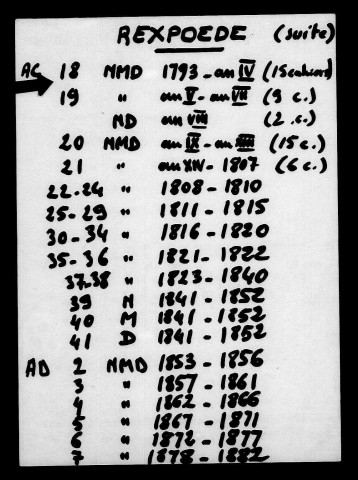 REXPOEDE (suite)
AC 18 NMD 1793 - an IV (15 cahiers)
19 " an V - an VII (9 c.)
ND an VIII (2 c.)
20 NMD an IX - an XIII (15 c.)
21 " an XIV - 1807 (6 c.)
22-24 " 1808 - 1810
25-29 " 1811 - 1815
30-34 " 1816 - 1820
35-36 " 1821 - 1822
37-38 " 1823 - 1840
39 N 1841 - 1852
40 M 1841 - 1852
41 D 1841 - 1852
AD 2 NMD 1853 - 1856
3 " 1857 - 1861
4 " 1862 - 1866
5 " 1867 - 1871
6 " 1872 - 1877
7 " 1878 - 1882